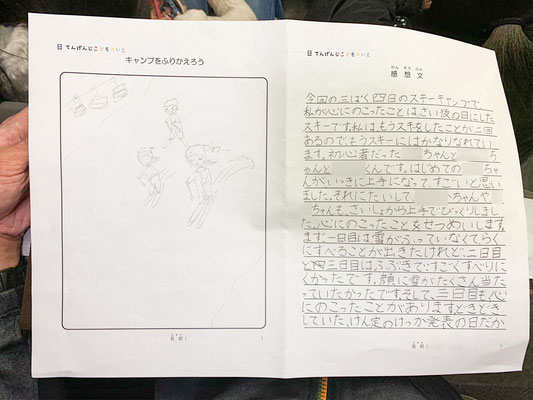 てんげんじこどものいえ
キャンプをふりかえろう
名前(
てんげんじこどものいえ
かん そう ぶん
感想文
今回の三ぱく四日のスキーキャンプで、
私が心にのこったことは、さい後の日にした
スキーです。私はもうスキーをしたことが二回
あるので、もうスキーにはかなりなれてい
ます。初心者だった ちゃんと ち
ゃんと くんです。はじめての ちゃ
んがいっきに上手になって、すごいと思い
ました。それにたいして、 ちゃんや
ちゃんも、さいしょから上手でびっくりしまし
た。心にのこったことをせつめいします。
まず、一日目は雪がふっていなくてらく
にすべることが出きたけれど、二日目
と三日目は、ふぶきですごくすべりに
くかったです。顔に雪がたくさん当た
っていたかったです。そして、三日目も心
にのこったことがあります。どきどき
していた、けん定のけっか発表の日だか
名前(